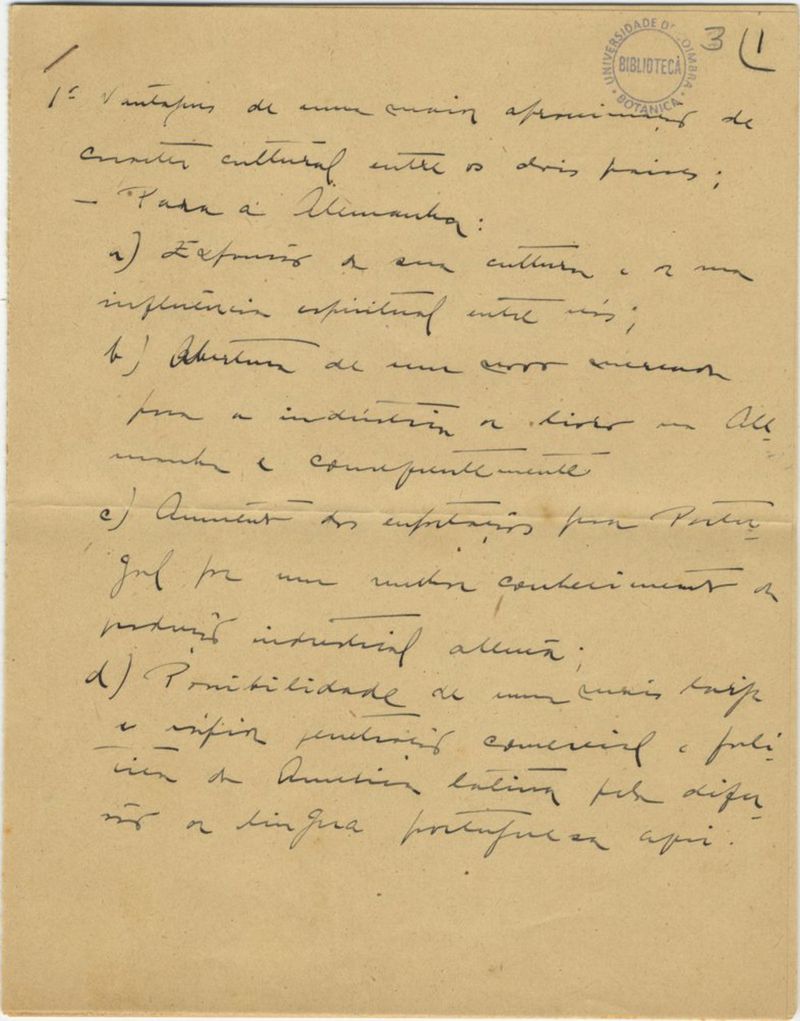 3 (1
UNIVERSIDADE DE COIMBRA
BIBLIOTECA
BOTANICA
1º Vantagens de uma maior aproximação de
caracter cultural entre os dois paises;
– Para a Alemanha:
a) Expansão da sua cultura e da sua
influência espiritual entre nós;
b) Abertura de um novo mercado
para a indústria do livro na Ale-
manha e consequentemente
c) Aumento das exportações para Portu-
gal por um melhor conhecimento da
produção industrial alemã;
d) Possibilidade de uma mais larga
e penetração comercial e polí-
tica da America latina pela difu-
são da lingua portuguesa aqui.